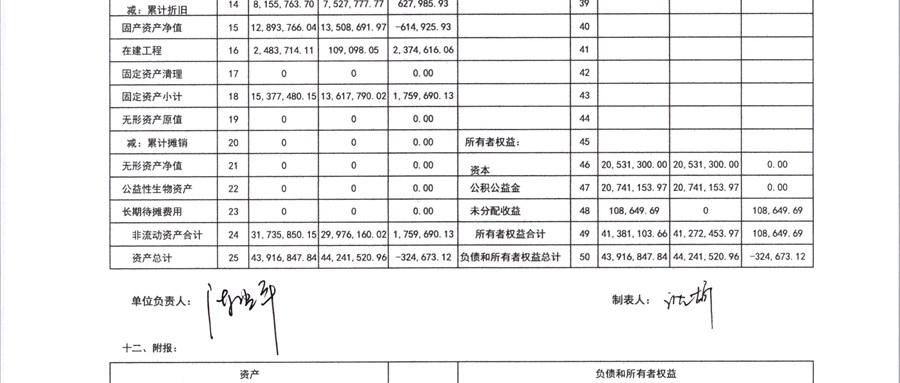 减：累计折旧 14 8,155,763.70 7,527,777.77 627,985.93 39
固产资产净值 15 12,893,766.04 13,508,691.97 -614,925.93 40
在建工程 16 2,483,714.11 109,098.05 2,374,616.06 41
固定资产清理 17 0 0 0.00 42
固定资产小计 18 15,377,480.15 13,617,790.02 1,759,690.13 43
无形资产原值 19 0 0 0.00 44
减：累计摊销 20 0 0 0.00 所有者权益： 45
无形资产净值 21 0 0 0.00 资本 46 20,531,300.00 20,531,300.00 0.00
公益性生物资产 22 0 0 0.00 公积公益金 47 20,741,153.97 20,741,153.97 0.00
长期待摊费用 23 0 0 0.00 未分配收益 48 108,649.69 0 108,649.69
非流动资产合计 24 31,735,850.15 29,976,160.02 1,759,690.13 所有者权益合计 49 41,381,103.66 41,272,453.97 108,649.69
资产总计 25 43,916,847.84 44,241,520.96 -324,673.12 负债和所有者权益总计 50 43,916,847.84 44,241,520.96 -324,673.12
单位负责人： 制表人：
十二、附报：
资产 负债和所有者权益